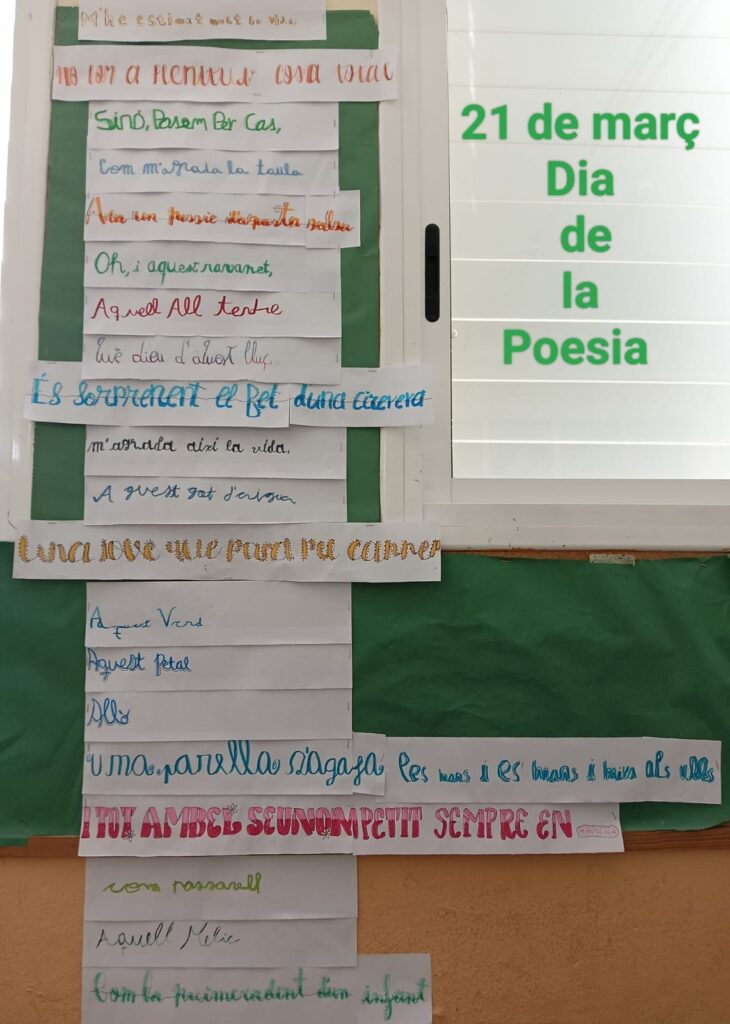 M'he estimat molt la vida
no com a plenitud cosa total
Sinó, Posem Per Cas,
Com m'agrada la taula
Ara un pessic d'aquesta salsa
Oh, i aquest ravanet,
Aquell All tendre
Què dieu d'aquest lluç
És sorprenent el fet duna cirerera
m'agrada així la vida,
Aquest got d'aigua
Una jove que passa pel carrer
Aquest Verd
Aquest Petal
Allò
Una parella s'agafa les mans i es mans i mira als ulls
I TOT AMBEL SEUNOMPETIT SEMPRE EN MINUSCULA
com passarell
Aquell Melic
Com la primeradent d'un infant
21 de març
Dia
de
la
Poesia